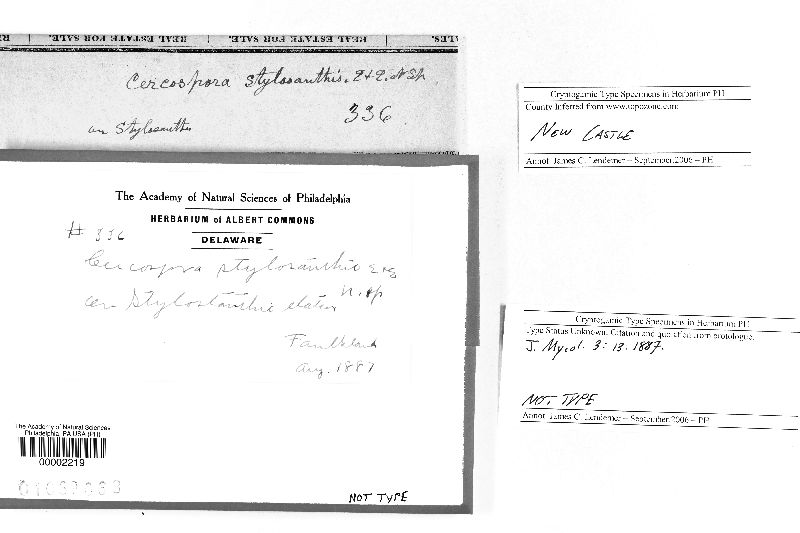 REAL ESTATE FOR SALE. REAL ESTATE FOR SALE. REAL ESTATE FOR SALE. ALES.
Cercospora stylosanthis. E+E. N Sp.
336
on Stylosanthes
The Academy of Natural Sciences of Philadelphia
HERBARIUM of ALBERT COMMONS
DELAWARE
# 336
Cercospora stylosanthis E+E
n. sp
on Stylosanthis elatior
Faulkland
Aug. 1887
The Academy of Natural Sciences
Philadelphia, PA USA (PH)
00002219
NOT TYPE
Cryptogamic Type Specimens in Herbarium PH
County Inferred from www.topozone.com
NEW CASTLE
Annot. James C. Lendemer – September 2006 – PH
Cryptogamic Type Specimens in Herbarium PH
Type Status Unknown. Citation and quotation from protologue.
J. Mycol. 3: 13. 1887.
NOT TYPE
Annot. James C. Lendemer – September 2006 – PH